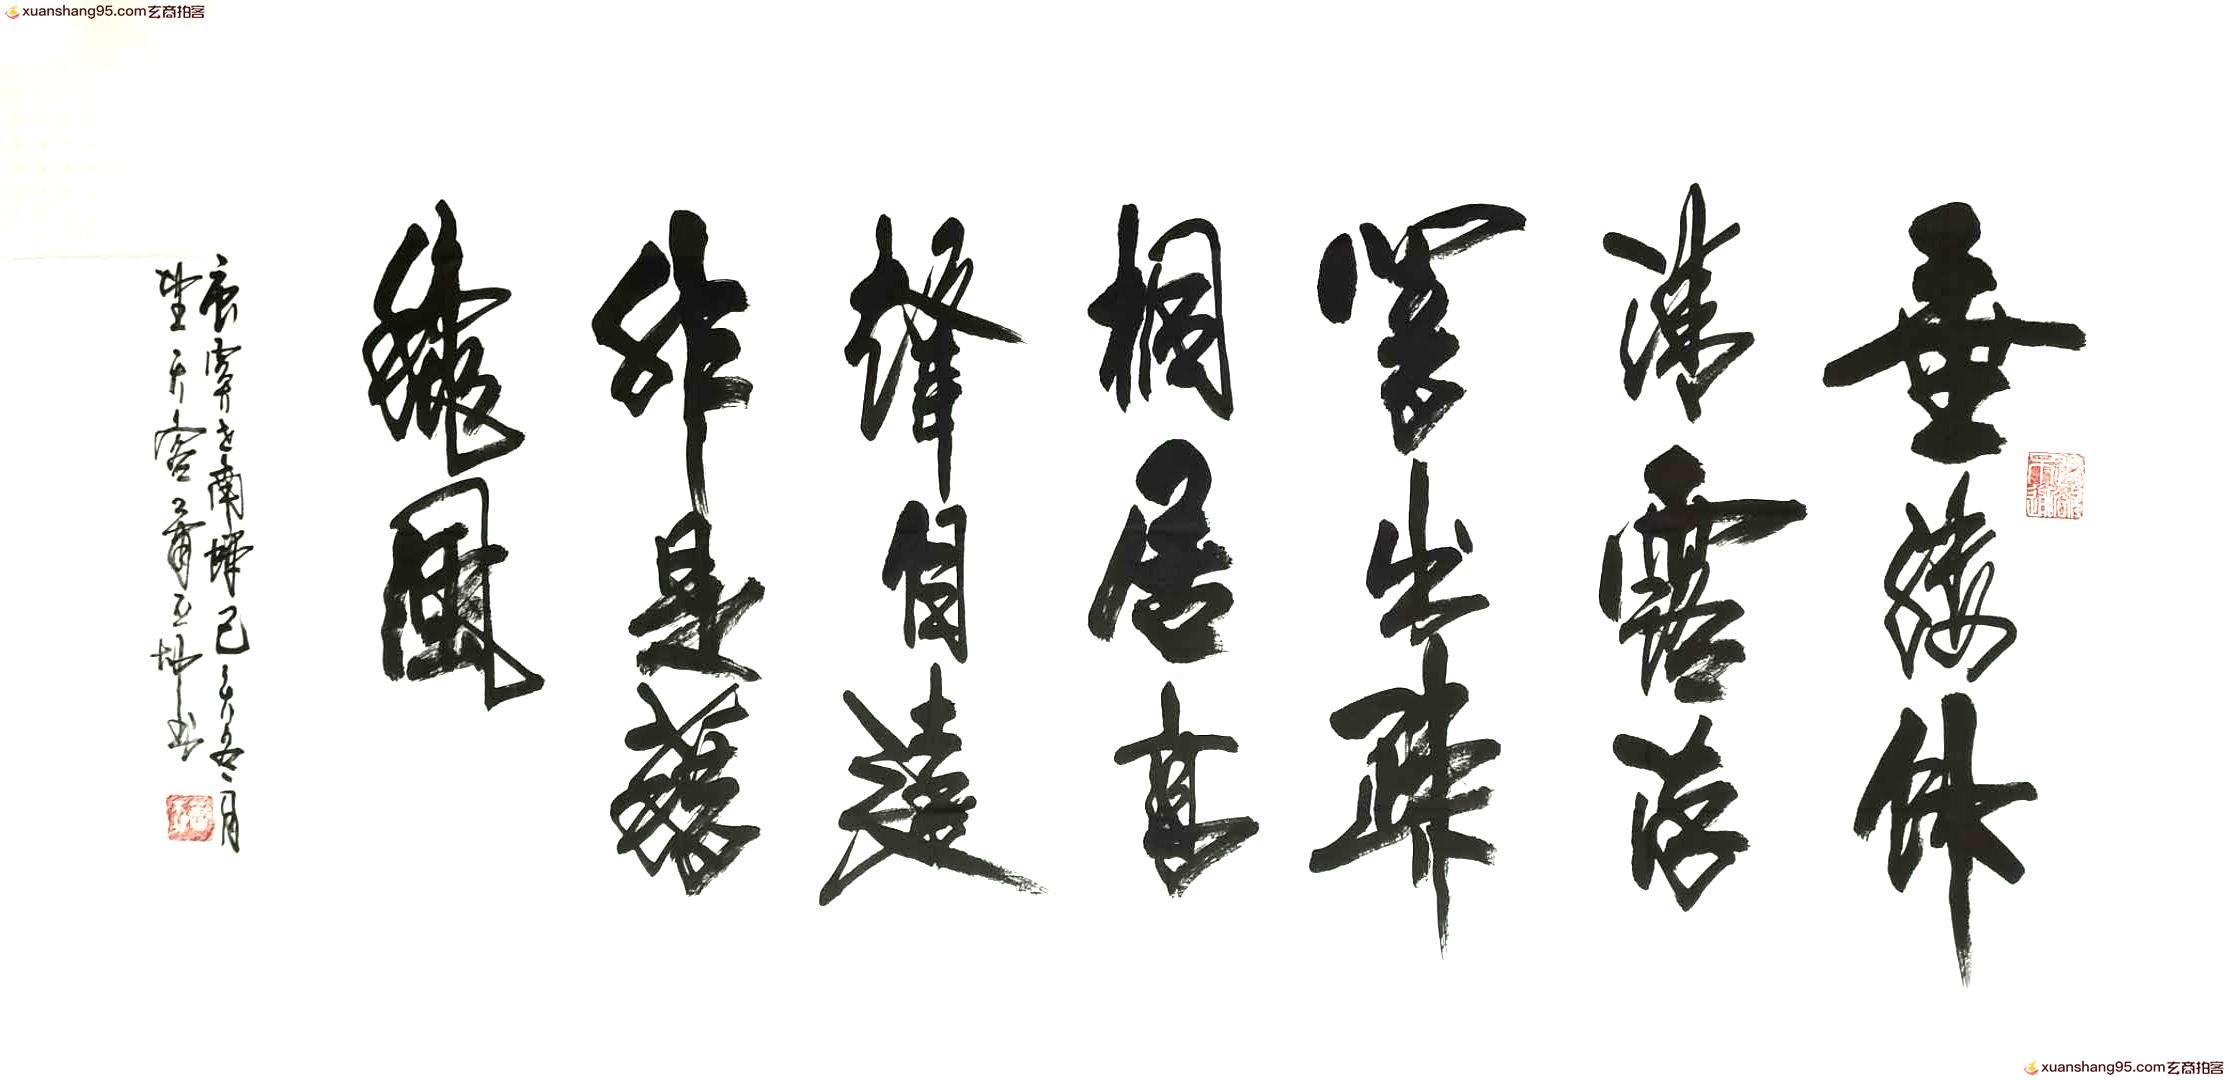 xuanshang95.com玄商拍客
垂緌飲
清露流
響出疏
桐居高
聲自遠
非是藉
龝風
唐虞世南蟬己亥冬月
書
xuanshang95.com玄商拍客